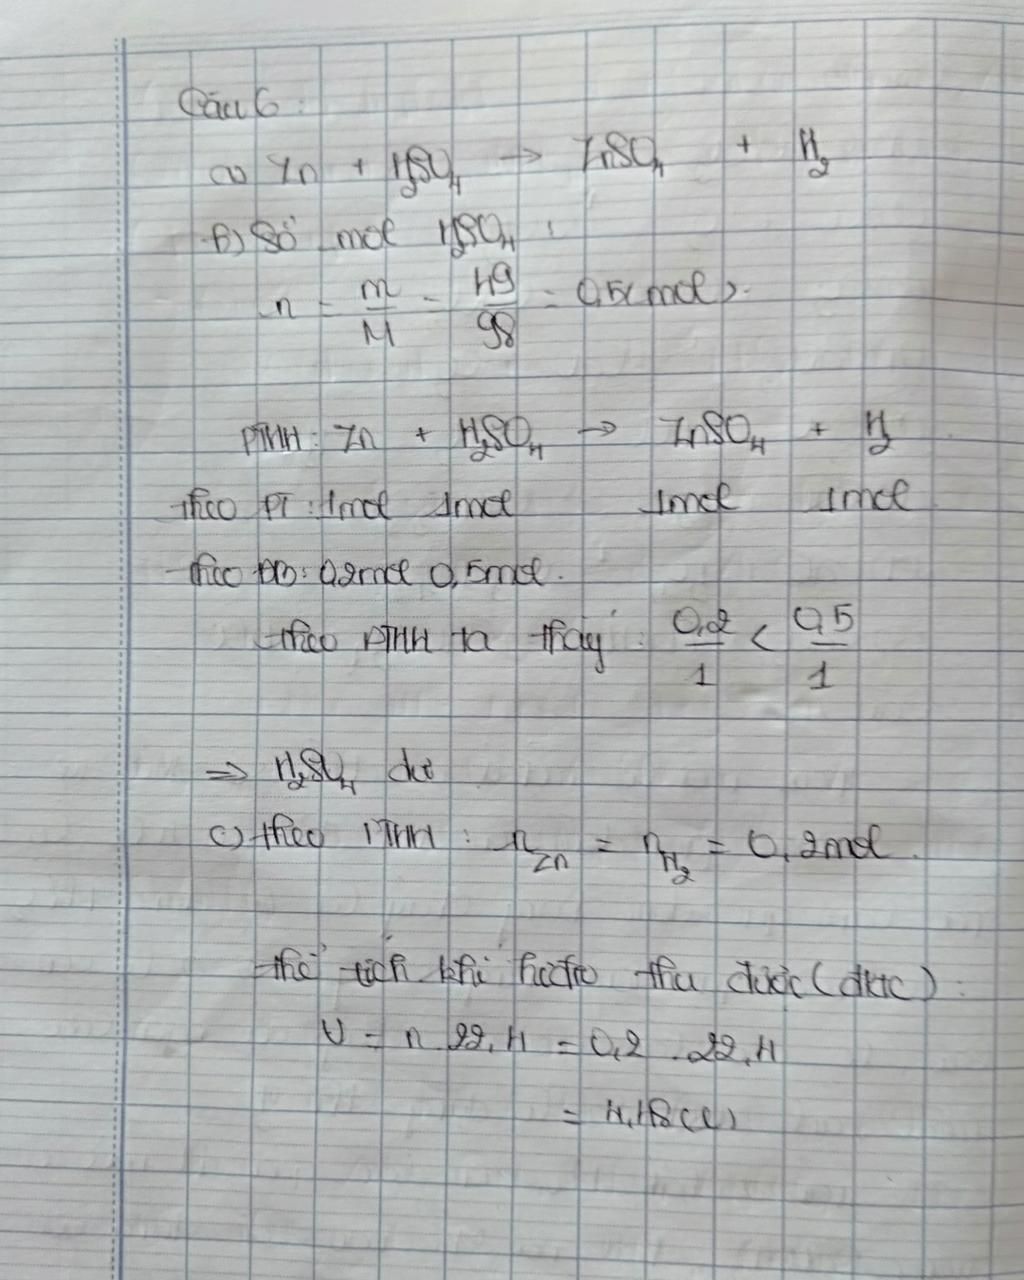 Câu 6:
a) Zn + H₂SO₄ → ZnSO₄ + H₂
b) Số mol H₂SO₄ :
n = m/M = 49/98 = 0,5(mol).
PTHH: Zn + H₂SO₄ → ZnSO₄ + H₂
theo PT: 1mol 1mol 1mol 1mol
theo ĐB: 0,2mol 0,5mol.
theo PTHH ta thấy : 0,2/1 < 0,5/1
⇒ H₂SO₄ dư
c) theo PTHH : nZn = nH₂ = 0,2mol.
thể tích khí hiđro thu được (đktc) :
V = n.22,4 = 0,2 .22,4
= 4,48(l)